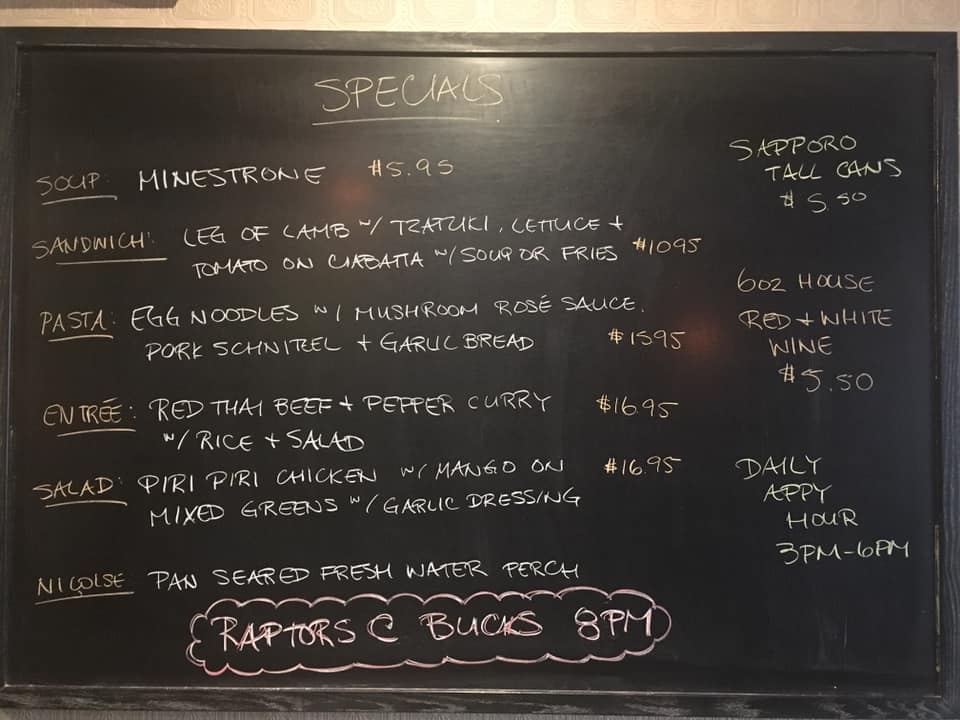 SPECIALS
SOUP: MINESTRONE $5.95
SANDWICH: LEG OF LAMB W/ TZATZIKI, LETTUCE +
TOMATO ON CIABATTA W/ SOUP OR FRIES $1095
PASTA: EGG NOODLES W/ MUSHROOM ROSÉ SAUCE.
PORK SCHNITZEL + GARLIC BREAD $1595
ENTRÉE: RED THAI BEEF + PEPPER CURRY $16.95
W/ RICE + SALAD
SALAD: PIRI PIRI CHICKEN W/ MANGO ON $16.95
MIXED GREENS W/ GARLIC DRESSING
NIÇOLSE PAN SEARED FRESH WATER PERCH
RAPTORS @ BUCKS 8PM
SAPPORO
TALL CANS
$5.50
6OZ HOUSE
RED + WHITE
WINE
$5.50
DAILY
APPY
HOUR
3PM-6PM